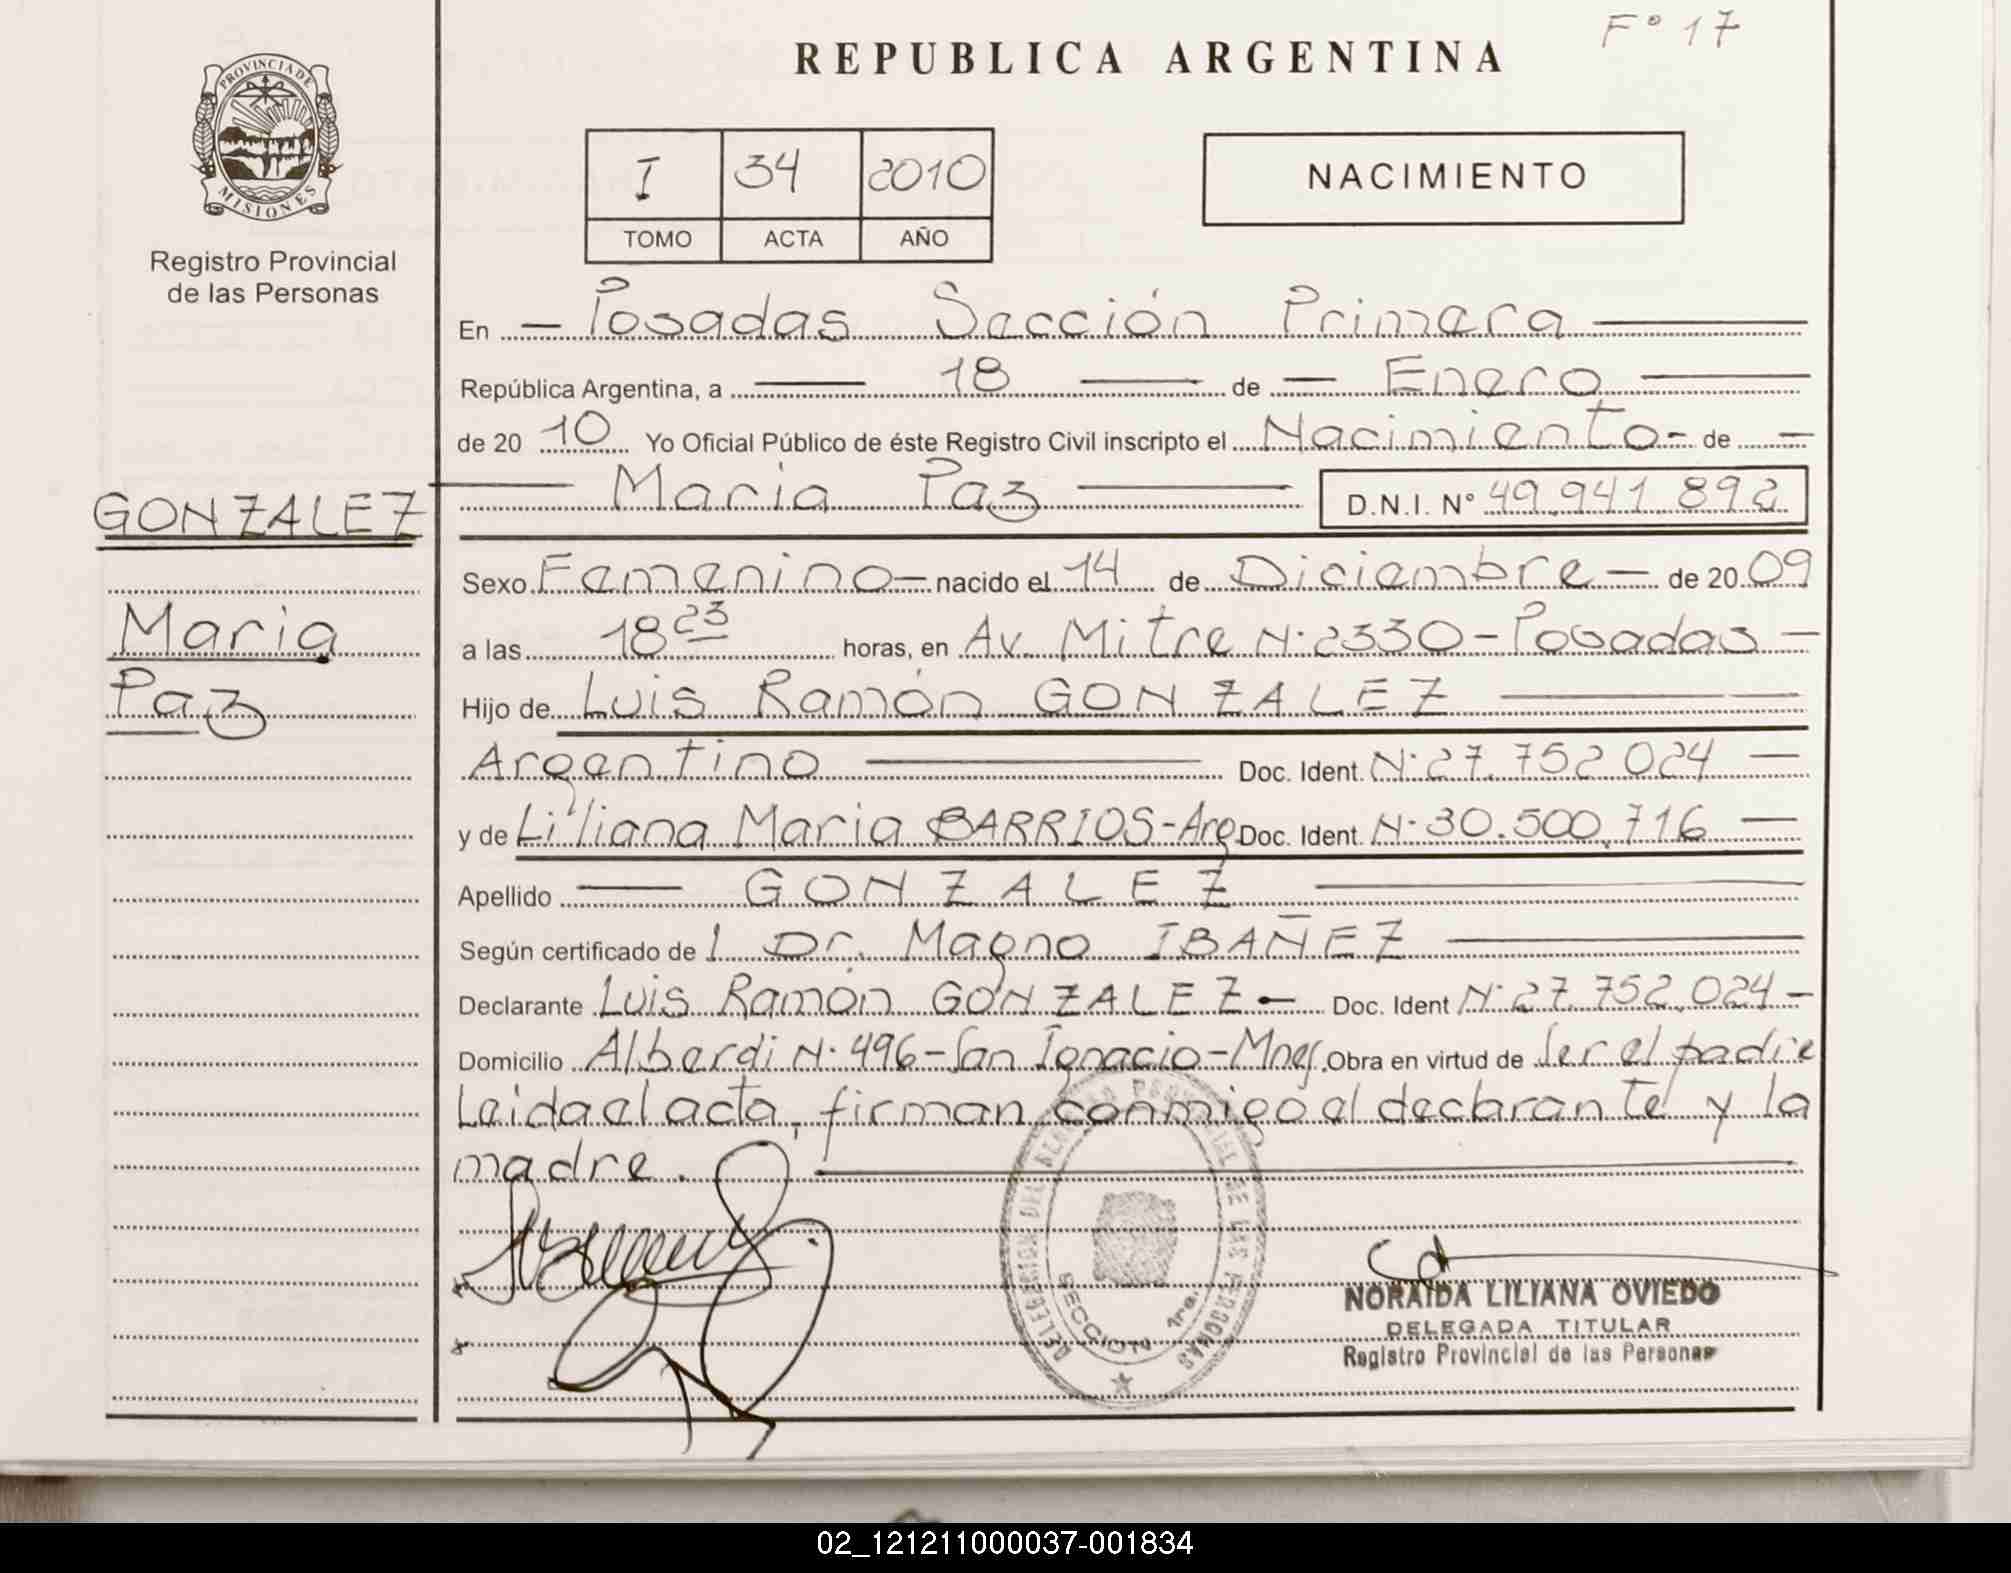 F° 17
REPUBLICA ARGENTINA
PROVINCIA DE
MISIONES
Registro Provincial
de las Personas
I 34 2010
TOMO ACTA AÑO
NACIMIENTO
En — Posadas Sección Primera —
República Argentina, a — 18 — de — Enero —
de 20 10 Yo Oficial Público de éste Registro Civil inscripto el Nacimiento - de —
— Maria Paz — D.N.I. N° 49.941.892
GONZALEZ
Maria
Paz
Sexo Femenino — nacido el 14 de Diciembre — de 20 09
a las 18 23 horas, en Av. Mitre N° 2330 - Posadas —
Hijo de Luis Ramón GONZALEZ —
Argentino — Doc. Ident. N° 27.752.024 —
y de Liliana Maria BARRIOS - Arg. Doc. Ident. N° 30.500.716 —
Apellido — GONZALEZ —
Según certificado de l Dr. Magno IBAÑEZ —
Declarante Luis Ramón GONZALEZ — Doc. Ident N° 27.752.024 —
Domicilio Alberdi N° 496 - San Ignacio - Mnes. Obra en virtud de Ser el padre
Leida el acta, firman conmigo el declarante y la
madre. —
DELEGACION DEL REGISTRO PROVINCIAL DE LAS PERSONAS
SECCION 1ra.
NORAIDA LILIANA OVIEDO
DELEGADA TITULAR
Registro Provincial de las Personas
02_121211000037-001834